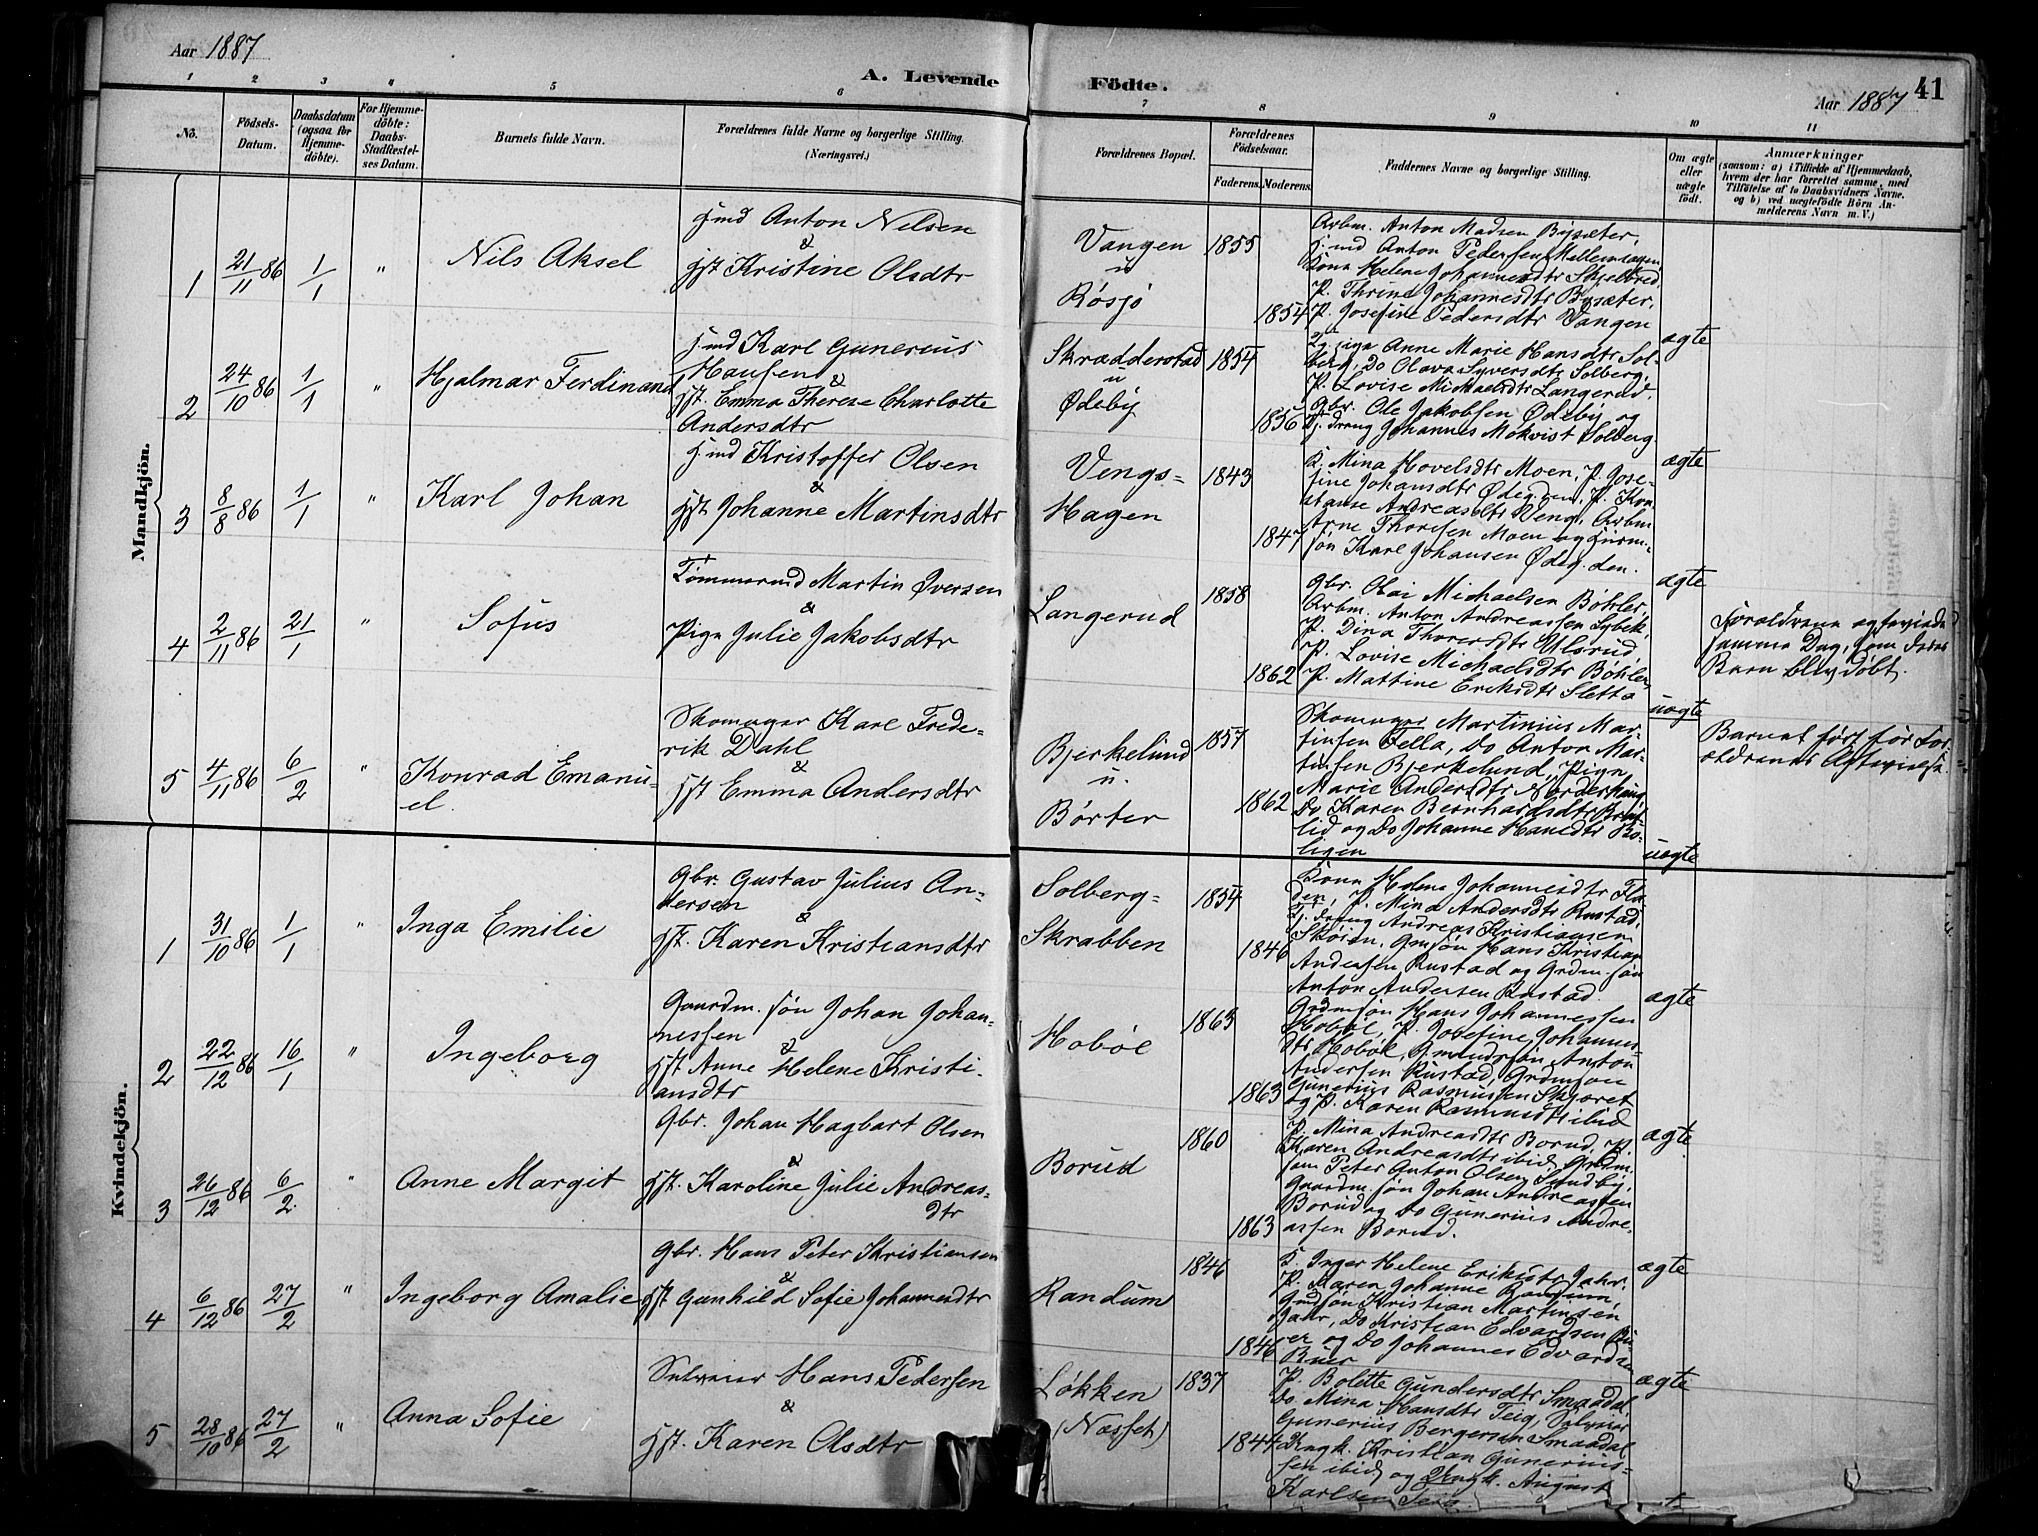 Aar 1887
A. Levende Fødte.
Aar 1887
41
1 2 3 4 5 6 7 8 9 10 11
No.
Födsels-
Datum.
Daabsdatum
(ogsaa for
Hjemme-
døbte).
For Hjemme-
döbte:
Daabs-
Stadfæstel-
ses Datum.
Barnets fulde Navn.
Forældrenes fulde Navne og borgerlige Stilling.
(Næringsvei.)
Forældrenes Bopæl.
Forældrenes
Födselsaar.
Faderens. Moderens.
Faddernes Navne og borgerlige Stilling.
Om ægte
eller
uægte
født.
Anmærkninger
(saasom: a) i Tilfælde af Hjemmedaab,
hvem der har forrettet samme, med
Tilföielse af to Daabsvidners Navne,
og b) ved uægtefödte Börn An-
melderens Navn m. V.)
Mandkjön.
1 21/11 86 1/1 " Nils Aksel
Anton Nilsen
&
Kristine Olsdtr
Vangen
u
Røsjø
1855
1854
Arbm. Anton Madsen Bysæter,
Anton Pedersen
Kona Helene Johannesdtr
P. Thrine Johannesdtr Bysæter,
P. Josefine Pedersdtr Vangen
ægte
2 24/10 86 1/1 " Hjalmar Ferdinand
Karl Gunerius
Hansen &
Emma Therese Charlotte
Andersdtr
Skrædderstad
u
Ødeby
1854
1856
Anne Marie Hansdtr Sol-
berg, Do Olava Syversdtr Solberg,
P. Lovise Michaelsdtr Langerud,
Gbr. Ole Jakobsen Ødeby og
Johannes Mökvist Solberg
ægte
3 8/8 86 1/1 " Karl Johan
Kristoffer Olsen
&
Johanne Martinsdtr
Vengs-
Hagen
1843
1847
K. Mina Hovelsdtr Moen, P. Jose-
fine Johansdtr Ødeg.den, P. Kon-
stanse Andreasdtr Veng, Arbm.
Arne Thoresen Moen og
søn Karl Johansen Ødeg.den.
ægte
4 2/11 86 21/1 " Sofus
Tømmermd Martin Iversen
&
Pige Julie Jakobsdtr
Langerud
1858
1862
Gbr. Olai Michaelsen Bøhler,
Arbm. Anton Andreassen Lybek,
P. Dina Thoresdtr Ulsrud,
P. Lovise Michaelsdtr Bøhler,
P. Mattine Eriksdtr Sletta
uægte
Forældrene ægteviede
samme Dag, som deres
Barn blev døbt.
5 4/11 86 6/2 " Konrad Emanu-
el.
Skomager Karl Frede-
rik Dahl
&
Emma Andersdtr
Bjerkelund
u.
Børter
1857
1862
Skomager Martinius Mar-
tinsen Fella, Do Anton Mar-
tinsen Bjerkelund, Pigen
Marie Andersdtr Norderhaug
Do Karen Bernhardsdtr
lid og Do Johanne Hansdtr Bo-
ligen
uægte
Barnet født før For-
ældrenes Ægtevielse.
Kvindekjön.
1 31/10 86 1/1 " Inga Emilie
Gbr. Gustav Julius An-
dersen
&
Karen Kristiansdtr
Solberg-
Skrabben
1854
1846
Kona Helene Johannesdtr Fla-
den, P. Mina Andersdtr Rustad,
Andreas Kristiansen
Skøien, Hans Kristian
Andersen Rustad og Grdm.søn
Anton Andersen Rustad.
ægte
2 22/12 86 16/1 " Ingeborg
Gaardm.søn Johan Johan-
nessen
&
Anne Helene Kristi-
ansdtr
Hobøl
1863
1863
Grdmsøn Hans Johannessen
Hobøl, P. Josefine Johannes-
dtr Hobøl, Anton
Andersen Rustad, Grdmsøn
Gunerius Rasmussen Skjøret
og P. Karen Rasmusdtr ibid
ægte
3 26/12 86 6/2 " Anne Margit
Gbr. Johan Hagbart Olsen
&
Karoline Julie Andreas-
dtr
Borud
1860
1863
P. Mina Andreasdtr Borud, P.
Karen Andreasdtr ibid, Grdm.
søn Peter Anton Olsen Sundby,
Gaardm.søn Johan Andreassen
Borud og Do Gunerius Andre-
assen Borud.
ægte
4 6/12 86 27/2 " Ingeborg Amalie
Gbr. Hans Peter Kristiansen
&
Gunhild Sofie Johannesdtr
Randum
1846
1846
K. Inger Helene Eriksdtr Jahr,
P. Maren Johanne Randum,
Kristian Martinsen
Jahr, Do Kristian Edvardsen Bu-
er og Do Johannes Edvardsen
Buer
ægte
5 28/10 86 27/2 " Anna Sofie
Selveier Hans Pedersen
&
Karen Olsdtr
Løkken
(Næsset)
1837
1844
P. Bolette Gundersdtr Smaadal
Do Mina Hansdtr Teig, Selveier
Gunerius Bergersen Smaadal
Ungk. Kristian Gunerius-
sen ibid og Ungk. August
Karlsen Teig
ægte